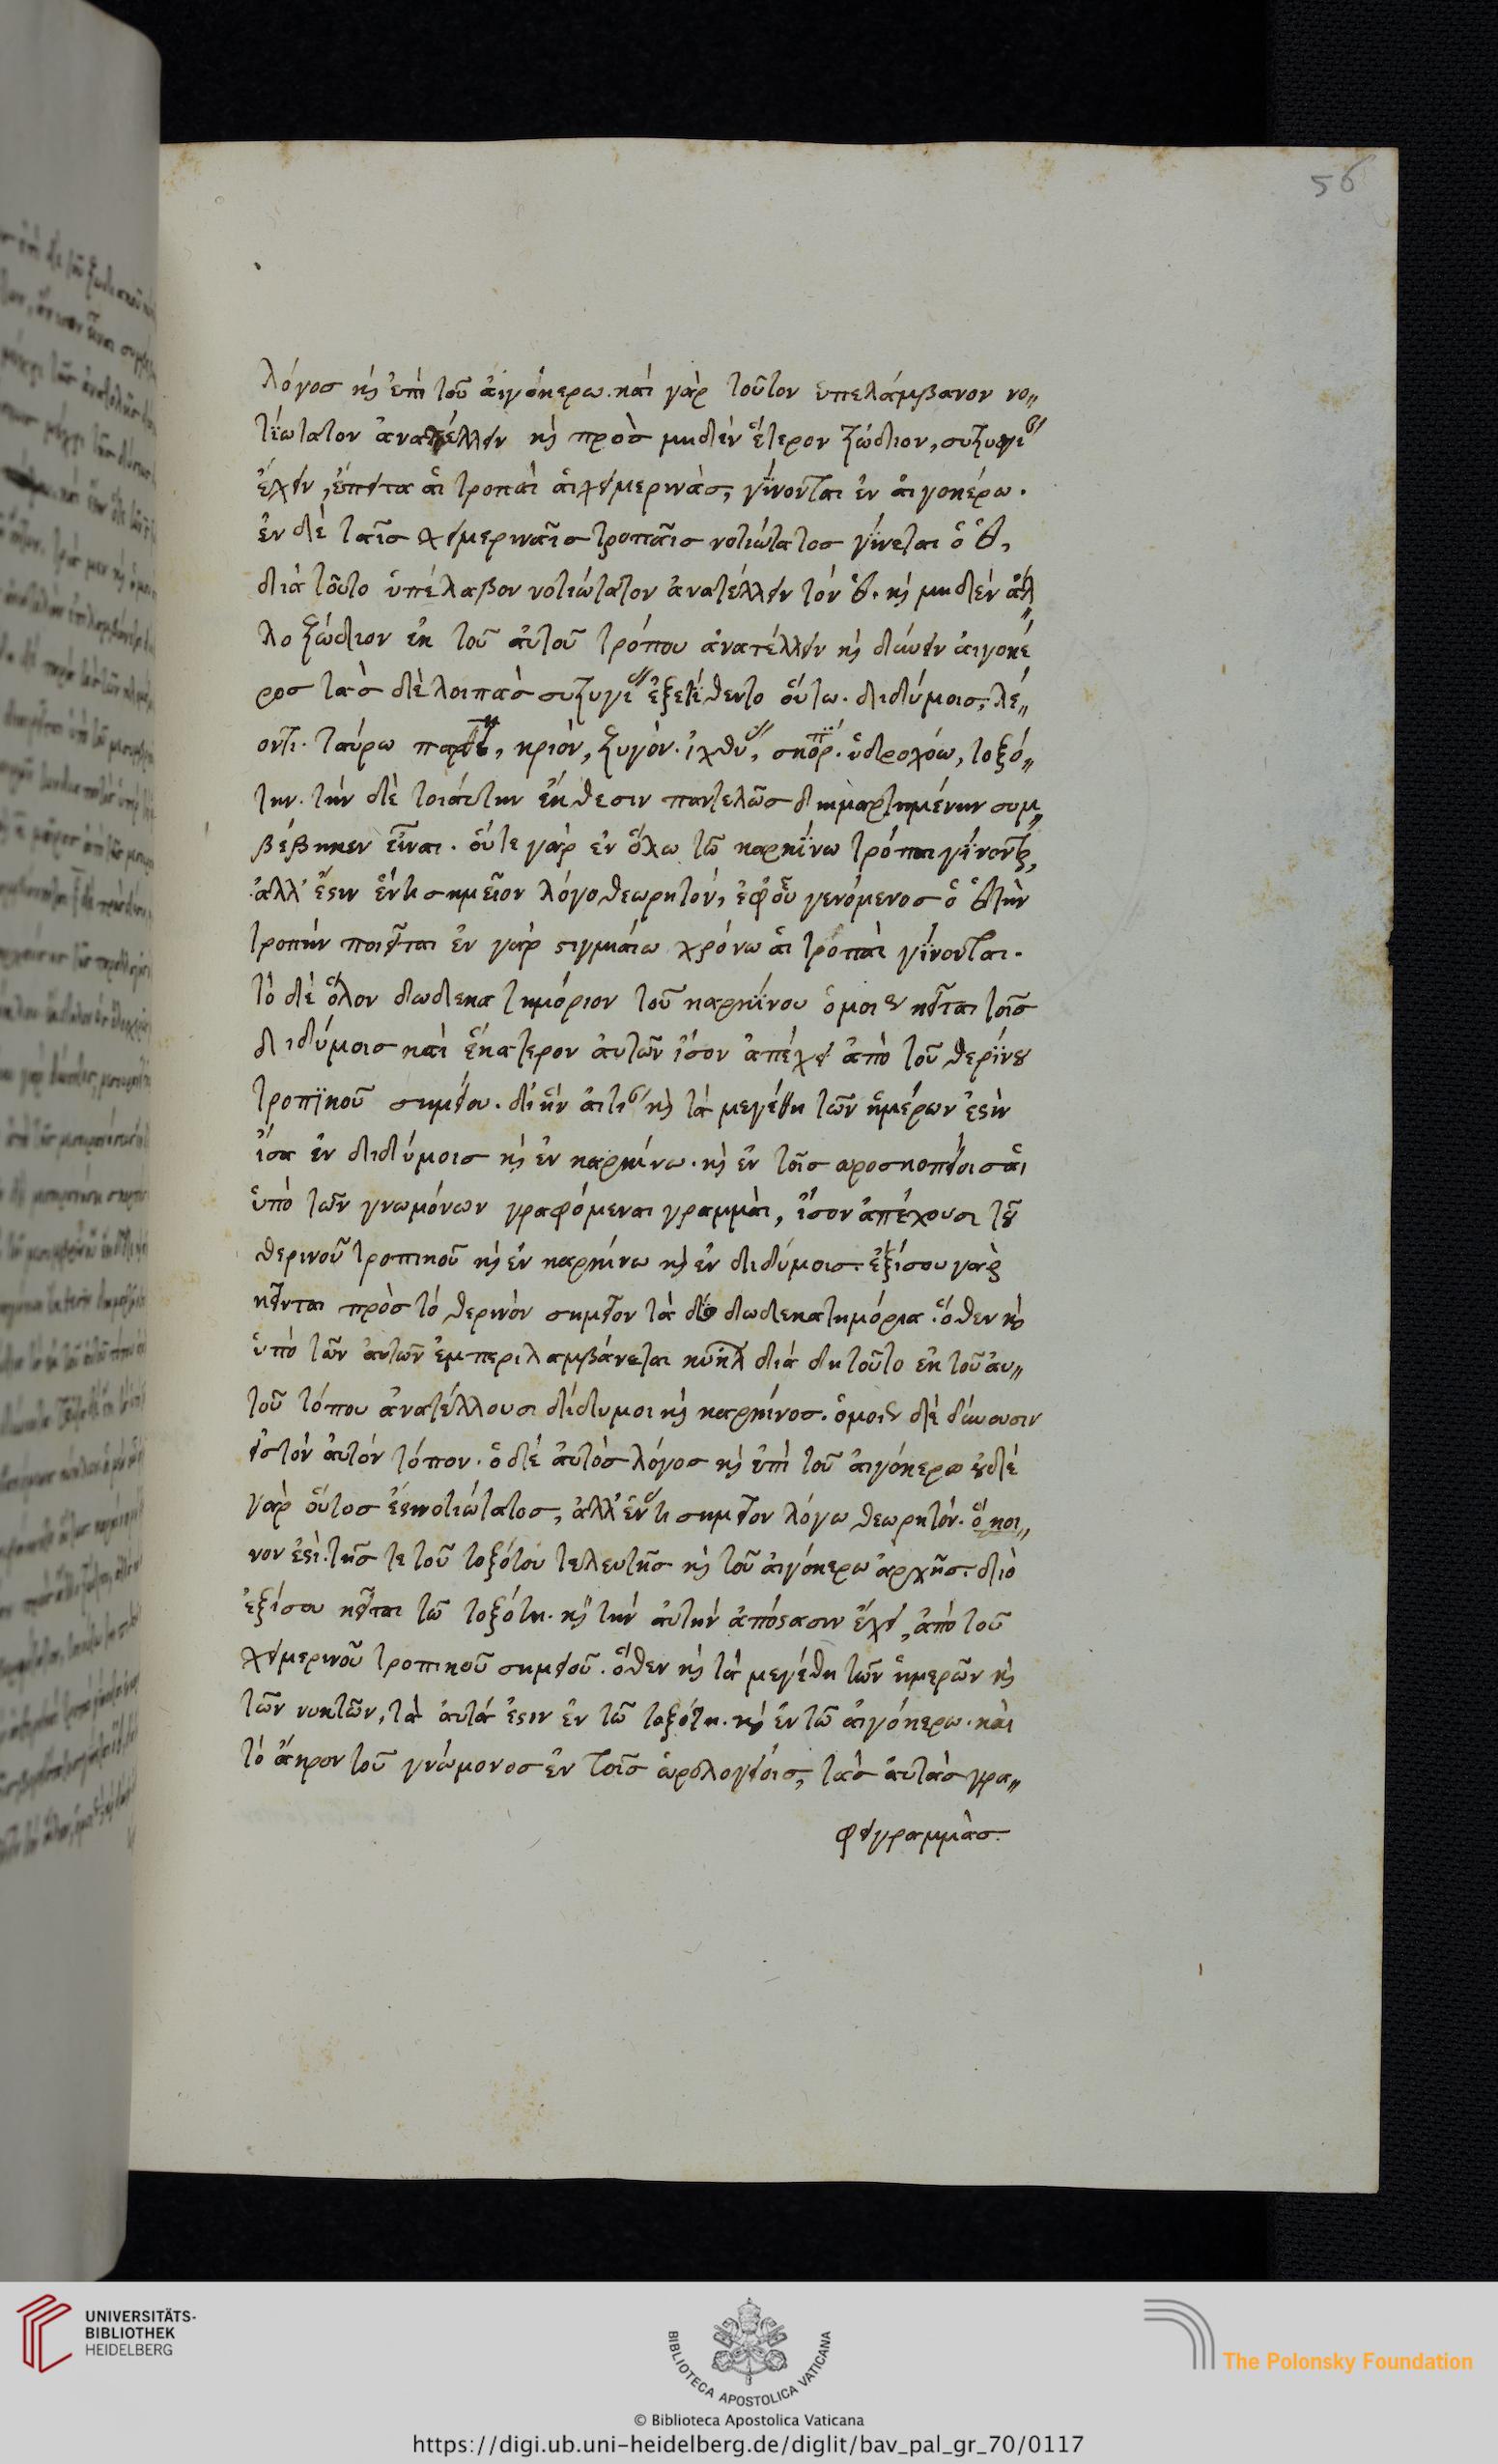 56
λόγος κὶ ἐπὶ τοῦ ἀιγόκερω. καὶ γὰρ τοῦτον ὑπελάμβανον νο〃
τϊώτατον ἀνατέλλειν κὶ πρὸς μηδὲν ἕτερον ζώδιον, συζυγί
ἔχειν, ἐπειτα ἁι τροπαὶ ἁι χειμεριναὶ, γίνονται ἐν ἀιγοκέρω.
ἐν δὲ ταῖς χειμεριναῖς τροπαῖς νοτιώτατος γίνεται ὁ
διὰ τοῦτο ὑπέλαβον νοτιώτατον ἀνατέλλειν τὸν κὶ μηδὲν ἄλ〃
λο ζώδιον ἐκ τοῦ ἀυτοῦ τρόπου ἀνατέλλειν κὶ δύνειν ἀιγοκέ
ρος τὰς δὲ λοιπὰς συζυγί ἐξετίθεντο οὕτω. διδύμοις, λέ〃
οντι. ταύρω κριὸν, ζυγὸν. ἰχθύ, σκορπ. ὑδροχόω, τοξό〃
την. τὴν δὲ τοιάυτην ἔκθεσιν παντελῶς διημαρτημένην συμ〃
βέβηκεν εἶναι. οὔτε γὰρ ἐν ὅλω τῶ καρκίνω τρόπαι γίνοντ,
ἀλλ' ἔστιν ἕν τι σημεῖον λόγο θεωρητόν, ἐφ' οὗ γενόμενος ὁ τὴν
τροπὴν ποιεῖται ἐν γὰρ στιγμιάιω χρόνω ἁι τροπαὶ γίνονται.
τὸ δὲ ὅλον δωδεκατημόριον τοῦ καρκίνου ὁμοι κεῖται τοῖς
διδύμοις καὶ ἑκάτερον ἀυτῶν ἴσον ἀπέχει ἀπὸ τοῦ θερίνου
τροπϊκοῦ σημείου. δι' ἣν ἀιτι κὶ τὰ μεγέθη τῶν ἡμέρων ἐστὶν
ἴσα ἐν διδύμοις κὶ ἐν καρκίνω. κὶ ἐν τοῖς ὡροσκοπείοις ἁι
ὑπὸ τῶν γνωμόνων γραφόμεναι γραμμαὶ, ἴσον ἀπέχουσι τοῦ
θερινοῦ τροπικοῦ κὶ ἐν καρκίνω κὶ ἐν διδύμοις. ἐξίσου γὰρ
κεῖνται πρὸς τὸ θερινὸν σημεῖον τὰ δύο δωδεκατημόρια. ὅθεν κὶ
ὑπὸ τῶν ἀυτῶν ἐμπεριλαμβάνεται κύκλ διὰ δὴ τοῦτο ἐκ τοῦ ἀυ〃
τοῦ τόπου ἀνατέλλουσι δίδυμοι κὶ καρκίνος. ὁμοι δὲ δύνουσιν
εἰς τὸν ἀυτὸν τόπον. ὁ δὲ ἀυτὸς λόγος κὶ ἐπὶ τοῦ ἀιγόκερω οὐδὲ
γὰρ οὗτος ἐστι νοτιώτατος, ἀλλ' ἕν τι σημεῖον λόγω θεωρητόν. ὃ κοι〃
νον ἐστὶ. τῆς τε τοῦ τοξότου τελευτῆς κὶ τοῦ ἀιγόκερω ἀρχῆς. διὸ
ἐξίσου κεῖται τῶ τοξότη. κὶ τὴν ἀυτὴν ἀπόστασιν ἔχει, ἀπὸ τοῦ
χειμερινοῦ τροπικοῦ σημείοῦ. ὅθεν κὶ τὰ μεγέθη τῶν ἡμερῶν κὶ
τῶν νυκτῶν, τὰ ἀυτά ἐστιν ἐν τῶ τοξότη. κὶ ἐν τῶ ἀιγόκερω. καὶ
τὸ ἄκρον τοῦ γνώμονος ἐν τοῖς ὡρολογείοις, τὰς ἀυτὰς γρα〃
φει γραμμὰς.
UNIVERSITÄTS-
BIBLIOTHEK
HEIDELBERG
BIBLIOTECA APOSTOLICA VATICANA
The Polonsky Foundation
© Biblioteca Apostolica Vaticana
https://digi.ub.uni-heidelberg.de/diglit/bav_pal_gr_70/0117